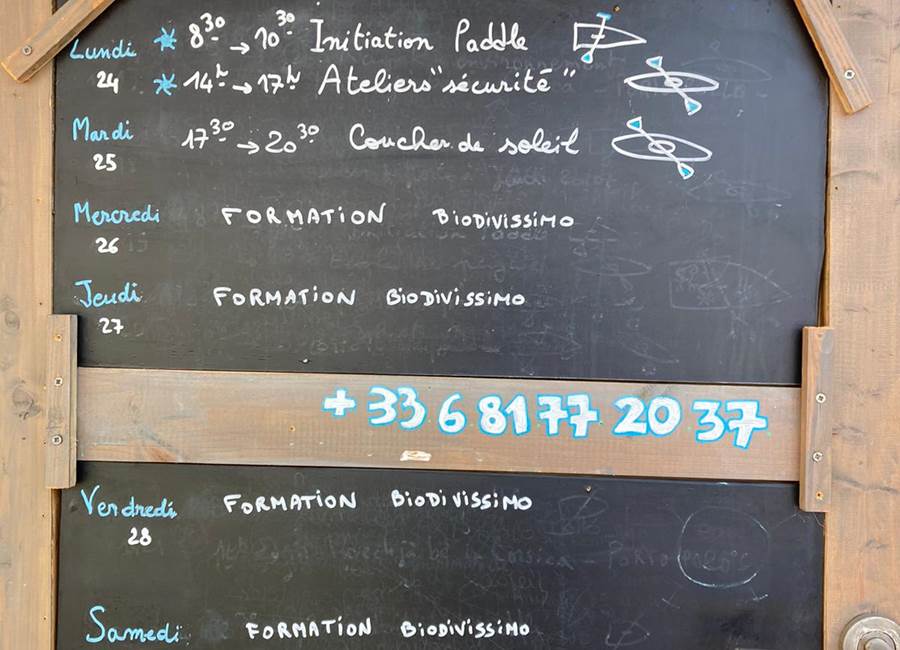 Lundi * 8³⁰ → 10³⁰ Initiation Paddle
24 * 14ʰ → 17ʰ Ateliers "sécurité"
Mardi 17³⁰ → 20³⁰ Coucher de soleil
25
Mercredi FORMATION BioDiViSSiMO
26
Jeudi FORMATION BioDiViSSiMO
27
+33 6 81 77 20 37
Vendredi FORMATION BioDiViSSiMO
28
Samedi FORMATION BioDiViSSiMO